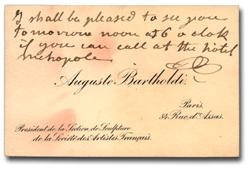 I shall be pleased to see you
tomorrow noon at 6 o clok
if you can call at the hôtel
metropole
Auguste Bartholdi
Paris.
34 Rue d'Assas.
Président de la Section de Sculpture
de la Société des Artistes Français.